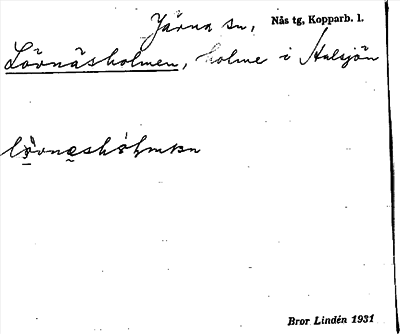 Järna sn, Nås tg, Kopparb. l.
Lövnäsholmen, holme i Halsjön
Bror Lindén 1931